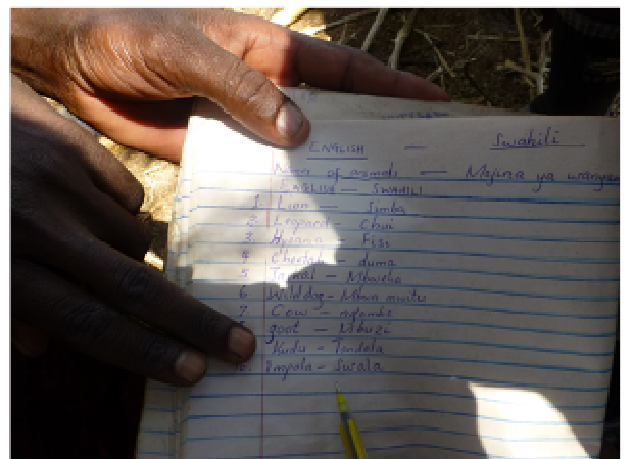 ENGLISH — Swahili
Names of animals — Majina ya wanyam
ENGLISH — SWAHILI
1. Lion — Simba
2. Leopard — Chui
3. Hyiana — Fisi
4 Cheetah - duma
5 — Mbweha
6 Wild dog - Mbwa mwitu
7. Cow — ngombe
8 goat — Mbuzi
Kudu - Tandala
10. Impala - Swala